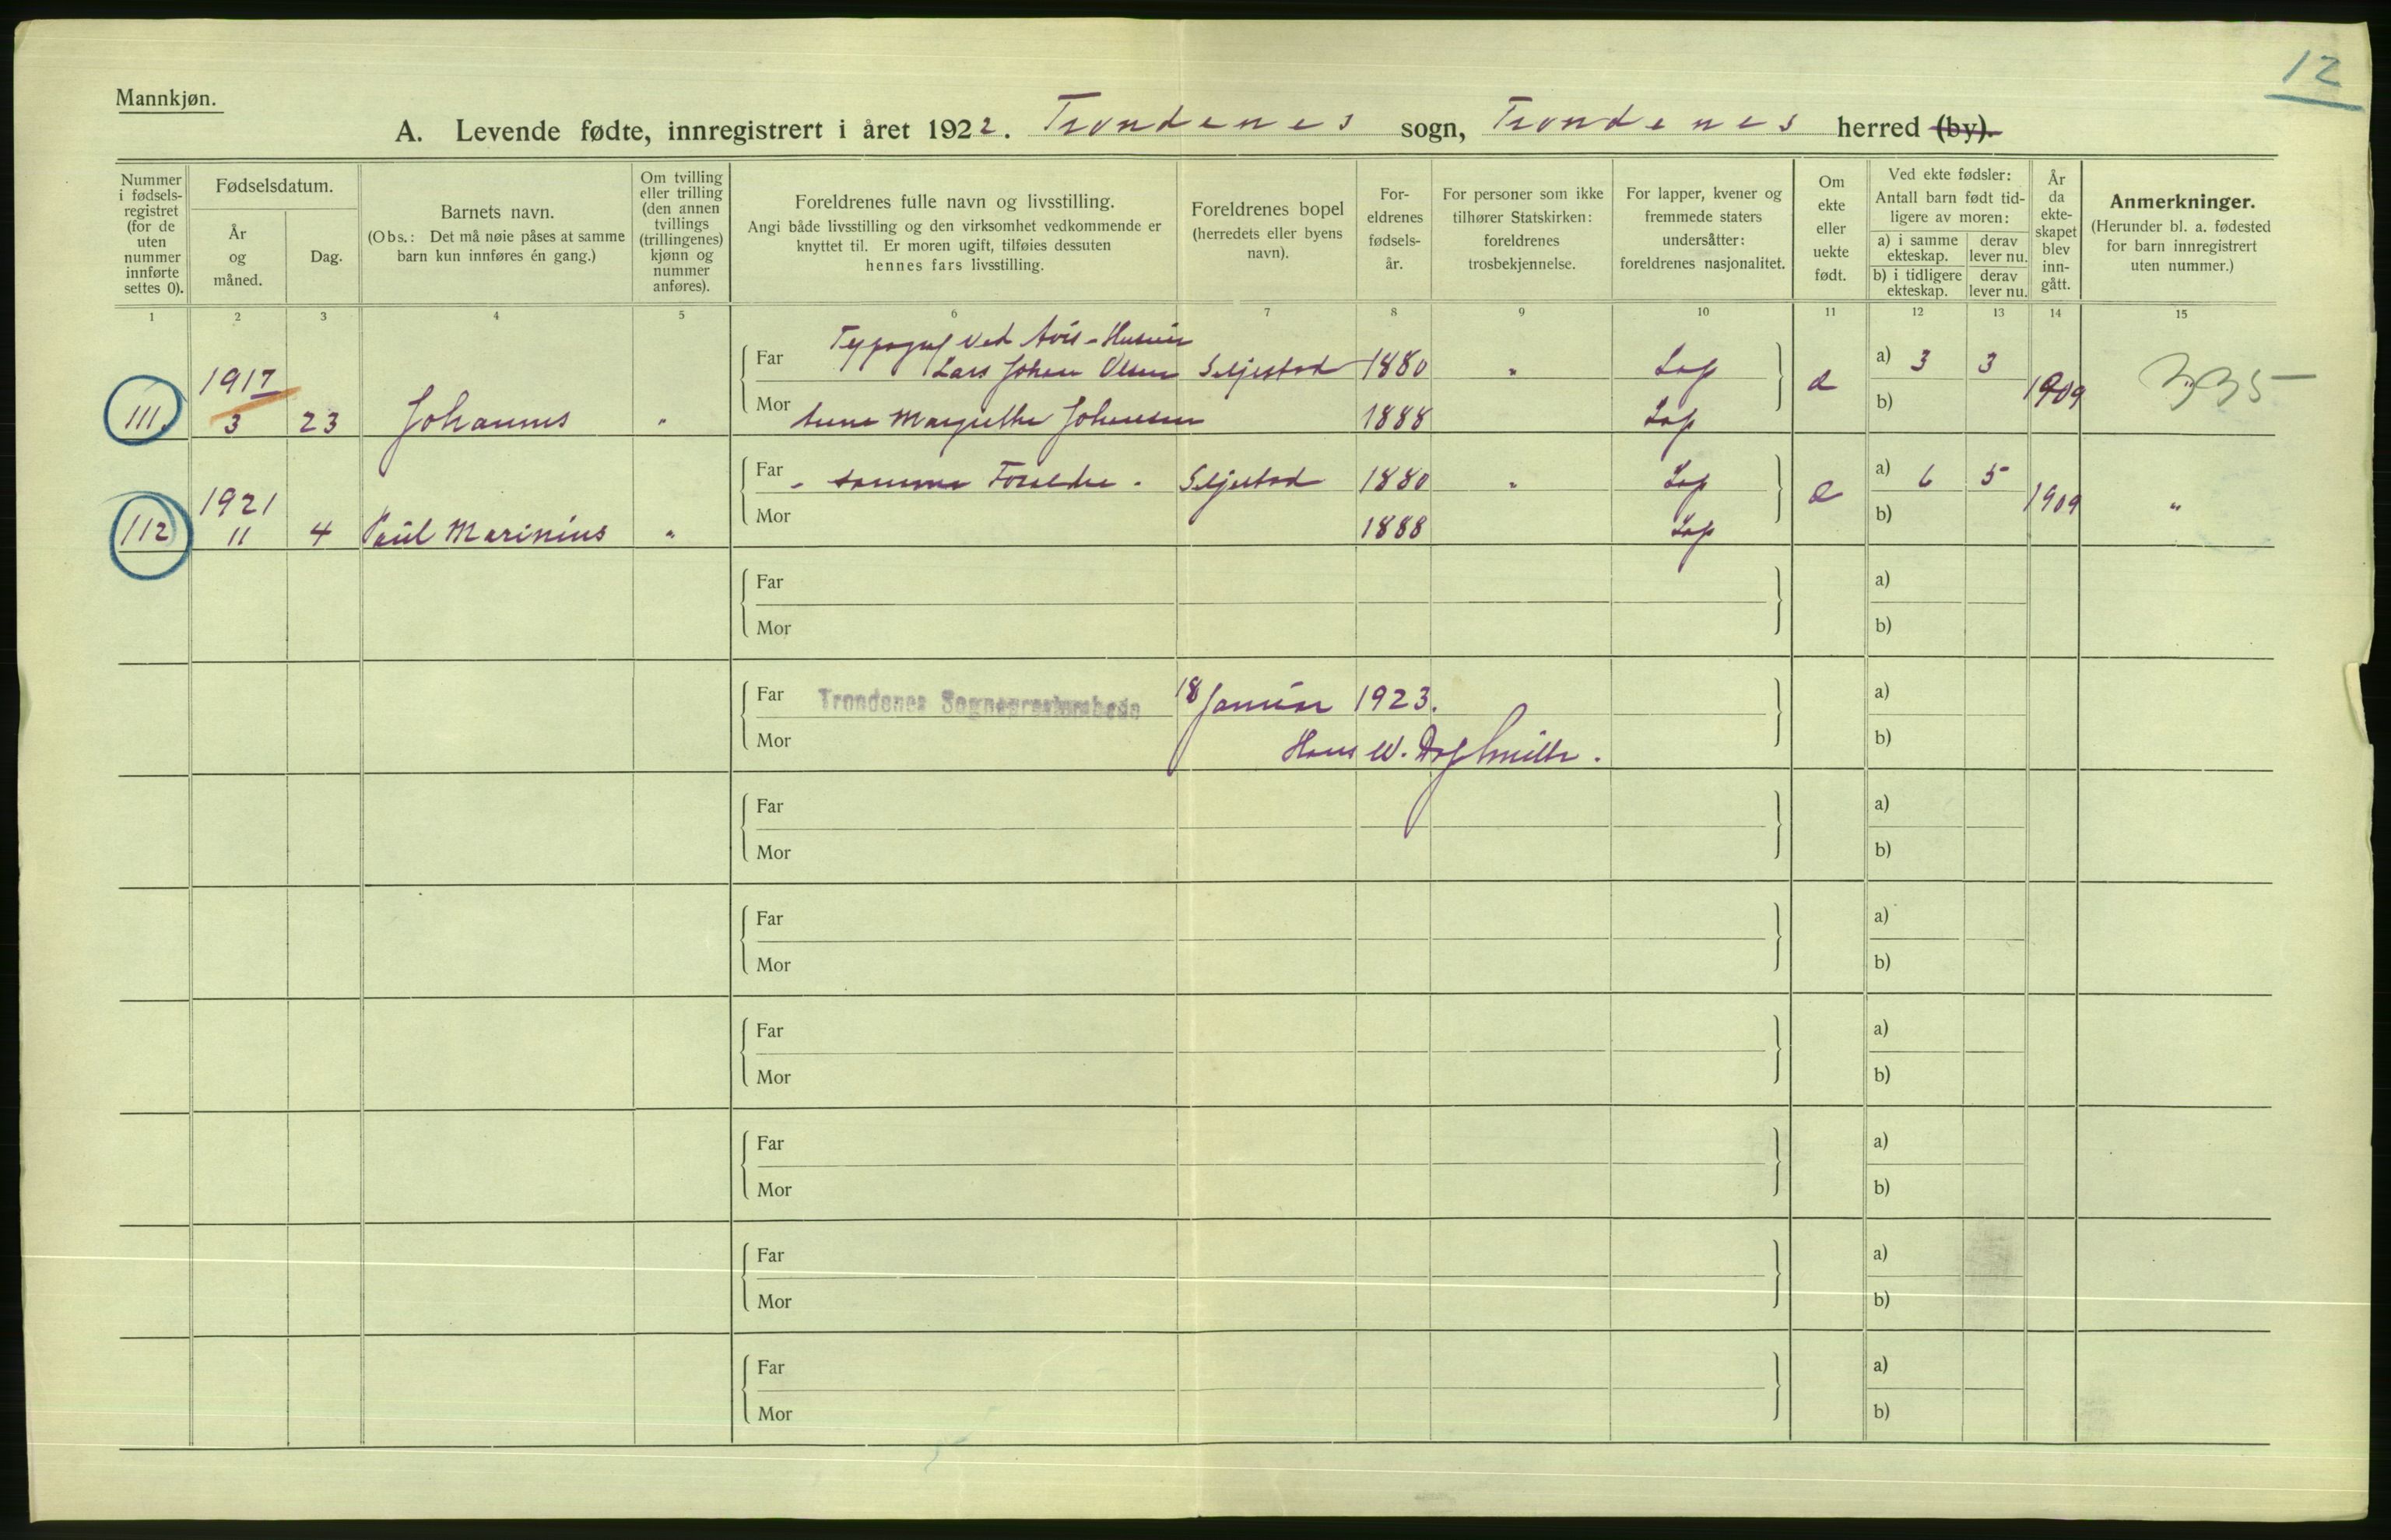 12
Mannkjøn.
A. Levende fødte, innregistrert i året 1922. Trondenes sogn, Trondenes herred (by).
Nummer i fødsels-registret (for de uten nummer innførte settes 0).
Fødselsdatum.
År og måned.
Dag.
Barnets navn.
(Obs.: Det må nøie påses at samme barn kun innføres én gang.)
Om tvilling eller trilling (den annen tvillings (trillingenes) kjønn og nummer anføres).
Foreldrenes fulle navn og livsstilling.
Angi både livsstilling og den virksomhet vedkommende er knyttet til. Er moren ugift, tilføies dessuten hennes fars livsstilling.
Foreldrenes bopel (herredets eller byens navn).
For-eldrenes fødsels-år.
For personer som ikke tilhører Statskirken: foreldrenes trosbekjennelse.
For lapper, kvener og fremmede staters undersåtter: foreldrenes nasjonalitet.
Om ekte eller uekte født.
Ved ekte fødsler:
Antall barn født tid-ligere av moren:
a) i samme ekteskap.
derav lever nu.
b) i tidligere ekteskap.
derav lever nu.
År da ekte-skapet blev inn-gått.
Anmerkninger.
(Herunder bl. a. fødested for barn innregistrert uten nummer.)
1 2 3 4 5 6 7 8 9 10 11 12 13 14 15
Typograf ved Avis-
111. 1917 3 23 Johannes " Far Lars Johan Olsen Seljestad 1880 " Lap e a) 3 3 1909 335
Mor Anna Margrethe Johansen 1888 Lap b)
112 1921 11 4 Paul Marinius " Far - samme Foreldre - Seljestad 1880 " Lap e a) 6 5 1909 "
Mor 1888 Lap b)
Far a)
Mor b)
Far Trondenes Sogneprestembede 18 Januar 1923. a)
Mor Hans W. b)
Far a)
Mor b)
Far a)
Mor b)
Far a)
Mor b)
Far a)
Mor b)
Far a)
Mor b)
Far a)
Mor b)